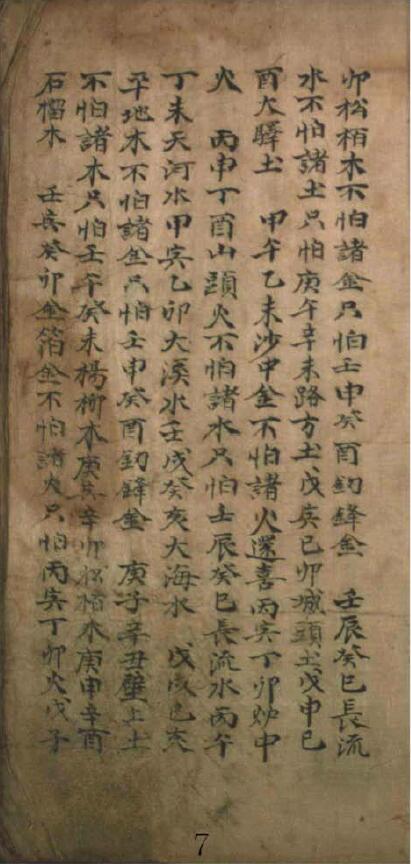 卯松栢木不怕諸金只怕壬申癸酉釰鋒金　壬辰癸巳長流
水不怕諸土只怕庚午辛未路方土戊寅己卯城頭土戊申己
酉大驛土　甲午乙未沙中金不怕諸火還喜丙寅丁卯炉中
火　丙申丁酉山頭火不怕諸水只怕壬辰癸巳長流水丙午
丁未天河水甲寅乙卯大溪水壬戌癸亥大海水　戊戌己亥
平地木不怕諸金只怕壬申癸酉釰鋒金　庚子辛丑壁上土
不怕諸木只怕壬午癸未楊柳木庚寅辛卯松栢木庚申辛酉
石榴木　壬寅癸卯金箔金不怕諸火只怕丙寅丁卯火戊子
7